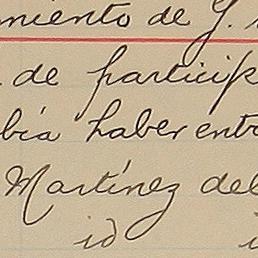 miento de G.
de particip
bía haber entr
Martínez del
id